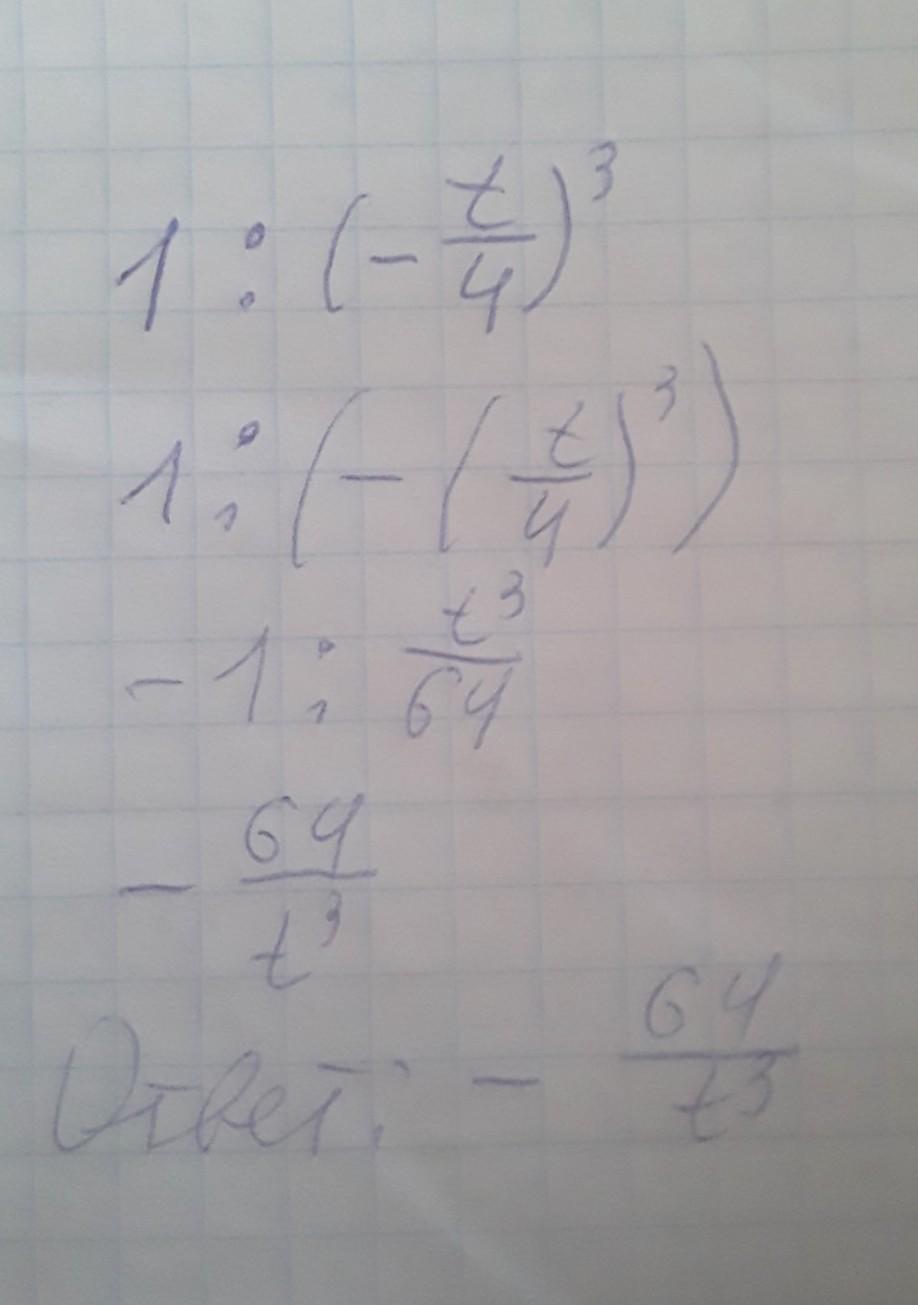 1 : (- t/4)³
1 : (- (t/4)³)
- 1 : t³/64
- 64/t³
Ответ: - 64/t³